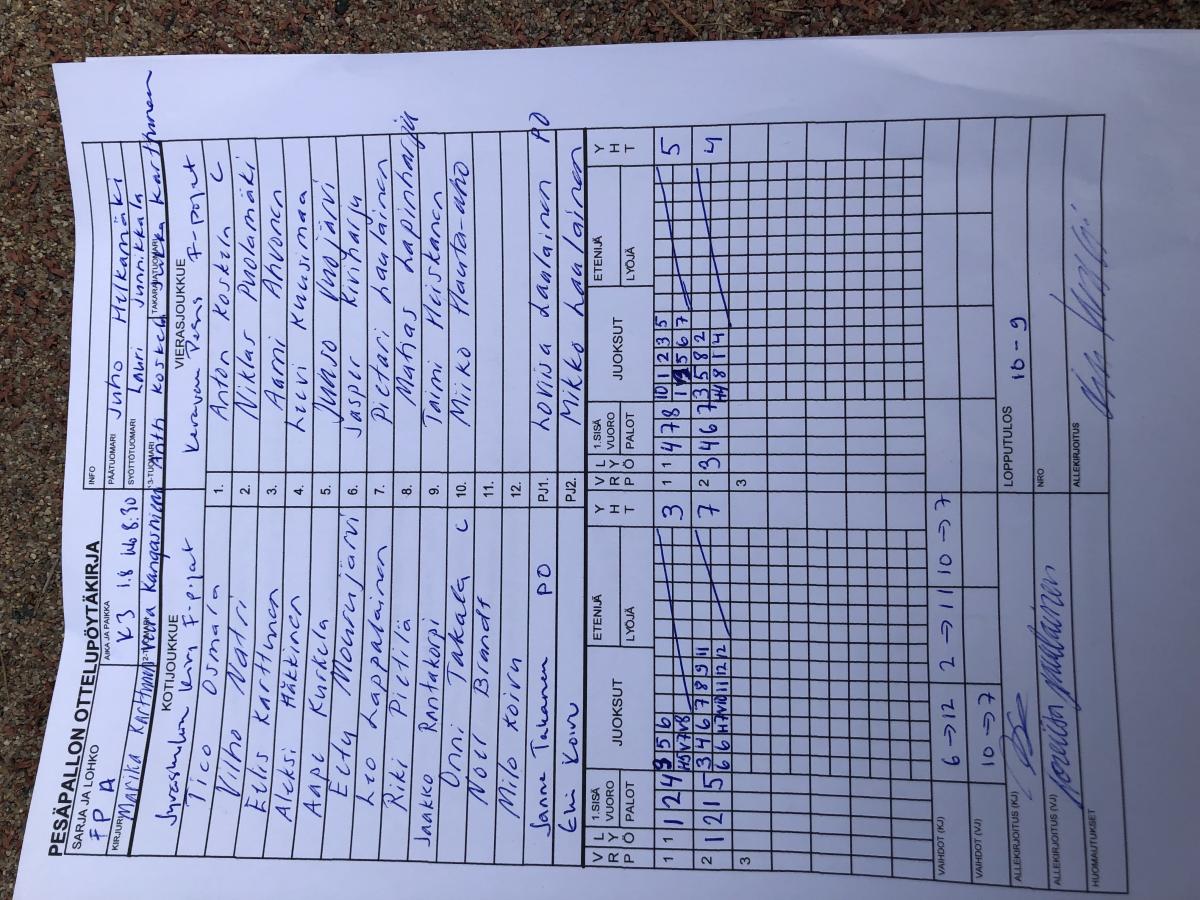 PESÄPALLON OTTELUPÖYTÄKIRJA
SARJA JA LOHKO AIKA JA PAIKKA INFO
FP A K3 1.8 klo 8:30
PÄÄTUOMARI Juho Helkamäki
SYÖTTÖTUOMARI Lauri Junnikkala
KIRJURI Marika Karttunen 2-TUOMARI Veera Kangasniemi 3-TUOMARI Antti Koskela TAKARAJATUOMARI Jukka Karttunen
KOTIJOUKKUE VIERASJOUKKUE
F-pojat Keravan Pesis F-pojat
Tico Osmala 1. Anton Koskela C
Vilho Vatri 2. Niklas Puolamäki
Eelis Karttunen 3. Aarni Ahvonen
Aleksi Häkkinen 4. Leevi Kuusimaa
Aapo Kurkela 5. Juuso Vuojärvi
Eetu Mourujärvi 6. Jasper Kiviharju
Leo Lappalainen 7. Pietari Laulainen
Riki Pietilä 8. Mathias Lapinharju
Jaakko Rantakorpi 9. Taimi Heiskanen
Onni Takala C 10. Miiko Hauta-aho
Noel Brandt 11.
Milo Koivu 12.
Sanna Takanen PO PJ1. Loviisa Laulainen PO
Koivu PJ2. Mikko Laulainen
V R P L Y Ö 1.SISÄ VUORO PALOT JUOKSUT ETENIJÄ LYÖJÄ Y H T V R P L Y Ö 1.SISÄ VUORO PALOT JUOKSUT ETENIJÄ LYÖJÄ Y H T
1 1 1 2 4 3 5 6 3 1 1 4 7 8 10 1 2 3 5 5
H5 V7 V8 1 5 6 7
2 1 2 1 5 3 4 6 7 8 9 11 7 2 3 4 6 7 3 5 8 2 4
6 6 H7 V10 11 12 12 H4 8 1 4
3 3
VAIHDOT (KJ) 6→12 2→11 10→7
VAIHDOT (VJ) 10→7
ALLEKIRJOITUS (KJ) LOPPUTULOS 10 - 9
ALLEKIRJOITUS (VJ) NRO
HUOMAUTUKSET ALLEKIRJOITUS